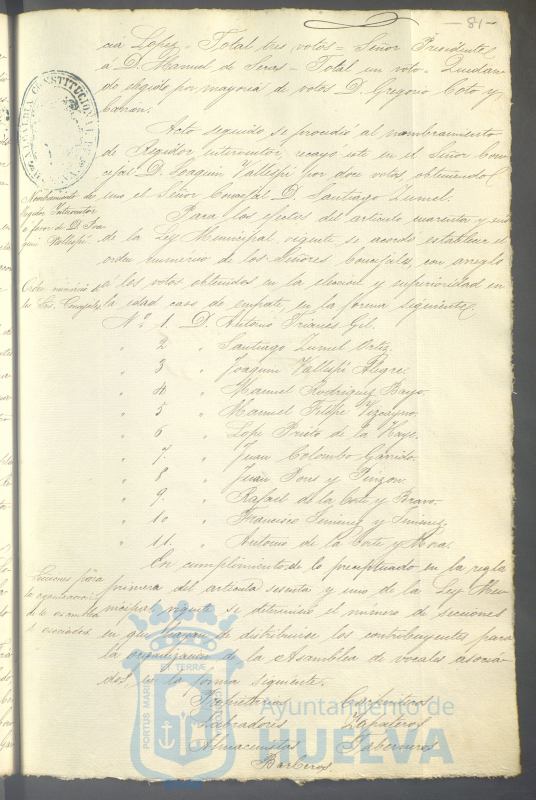 - 81 -
cia Lopez = Total tres votos = Señor Presidente
á D. Manuel de Seras = Total un voto = Quedan-
do elegido por mayoria de votos D. Gregorio Coto y
Cobian.
Acto seguido se procedió al nombramiento
de Regidor interventor, recayó este en el Señor Con-
cejal D. Joaquin Vallespi por doce votos obteniendo
uno el Señor Concejal D. Santiago Zumel.
Nombramiento de
Regidor Interventor
a favor de D. Joa-
quin Vallespi.
Para los efectos del articulo cuarenta y seis
de la Ley Municipal vigente se acordó establecer el
orden numerico de los Señores Concejales, con arreglo
á los votos obtenidos en la eleccion y superioridad en
la edad caso de empate, en la forma siguiente
Orden numerico de
los Sres. Concejales
Nº 1. D. Antonio Trianes Gil.
" 2 " Santiago Zumel Ortiz.
" 3 " Joaquin Vallespi Alegre.
" 4 " Manuel Rodriguez Bayo.
" 5 " Manuel Felipe Vizcayno.
" 6 " Lope Prieto de la Haye.
" 7. " Juan Colombo Garrido.
" 8 " Juan Pons y Pinzon.
" 9. " Rafael de la Corte y Bravo.
" 10 " Francisco Jimenez y Jimenez.
" 11. " Antonio de la Corte y Mora.
En cumplimiento de lo preceptuado en la regla
primera del articulo sesenta y uno de la Ley Mu-
nicipal vigente se determinó el número de secciones
en que hayan de distribuirse los contribuyentes para
la organizacion de la Asamblea de vocales asocia-
dos, en la forma siguiente.
Secciones para
la organizacion
de la asamblea
de asociados
Propietarios
Labradores Zapateros
Almacenistas Taberneros
Barberos.
PORTUS MARIS ET TERRÆ
Ayuntamiento de
HUELVA